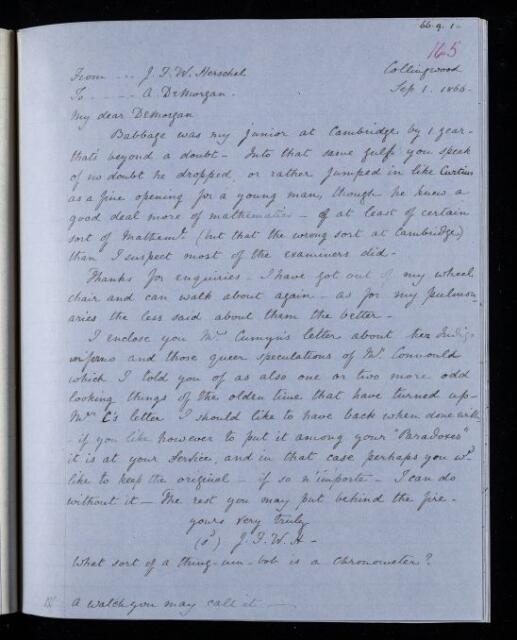 66. 9. 1-
165
From --- J. F. W. Herschel
Collingwood
To ---- A DeMorgan.
Sep 1. 1866.
My dear DeMorgan
Babbage was my junior at Cambridge by 1 year-
that's beyond a doubt - Into that same gulf you speak
of no doubt he dropped, or rather jumped in like Curtius
as a fine opening for a young man, though he knew a
good deal more of mathematics - of at least of certain
sort of Mathem. (but that the wrong sort at Cambridge)
than I suspect most of the examiners did -
Thanks for enquiries - I have got out of my wheel
chair and can walk about again - as for my pulmon
aries the less said about them the better -
I enclose you Mrs Cumyn's letter about her
and those queer speculations of Mr.
which I told you of as also one or two more odd
looking things of the olden time that have turned up -
Mrs C's letter I should like to have back when done with
- if you like however to put it among your "Paradoxes"
it is at your service, and in that case perhaps you wd
like to keep the original - if so n'importe - I can do
without it - The rest you may put behind the fire -
yours very truly
(sd) J. F. W. H -
What sort of a thing-um-bob is a Chronometer?
A watch you may call it -